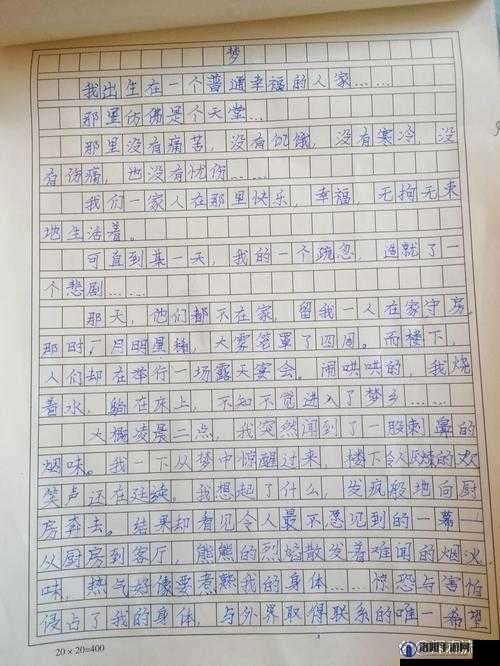 梦
我出生在一个普通幸福的人家……
那里仿佛是个天堂…
那里没有痛苦，没有饥饿，没有寒冷，没
有伤痛，也没有忧伤……
我们一家人在那里快乐，幸福，无拘无束
地生活着。
可直到某一天，我的一个疏忽，造就了一
个悲剧……
那天，他们都不在家，留我一人在家守房。
那时，月明星稀，大雾笼罩了四周。而楼下，
人们却在举行一场露天宴会。闹哄哄的，我烧
着水，躺在床上，不知不觉进入了梦乡……
大概凌晨二点，我突然闻到了一股刺鼻的
烟味。我一下从梦中惊醒过来，楼下令人厌烦的欢
笑声还在延续。我想起了什么，发疯般地向厨
房奔去。结果却看见令人最不忍见到的一幕—
从厨房到客厅，熊熊的烈焰散发着难闻的烟火
味，热气好像要煮熟我的身体……惊恐与害怕
侵占了我的身体，与外界取得联系的唯一希望
20×20=400
洛阳手游网